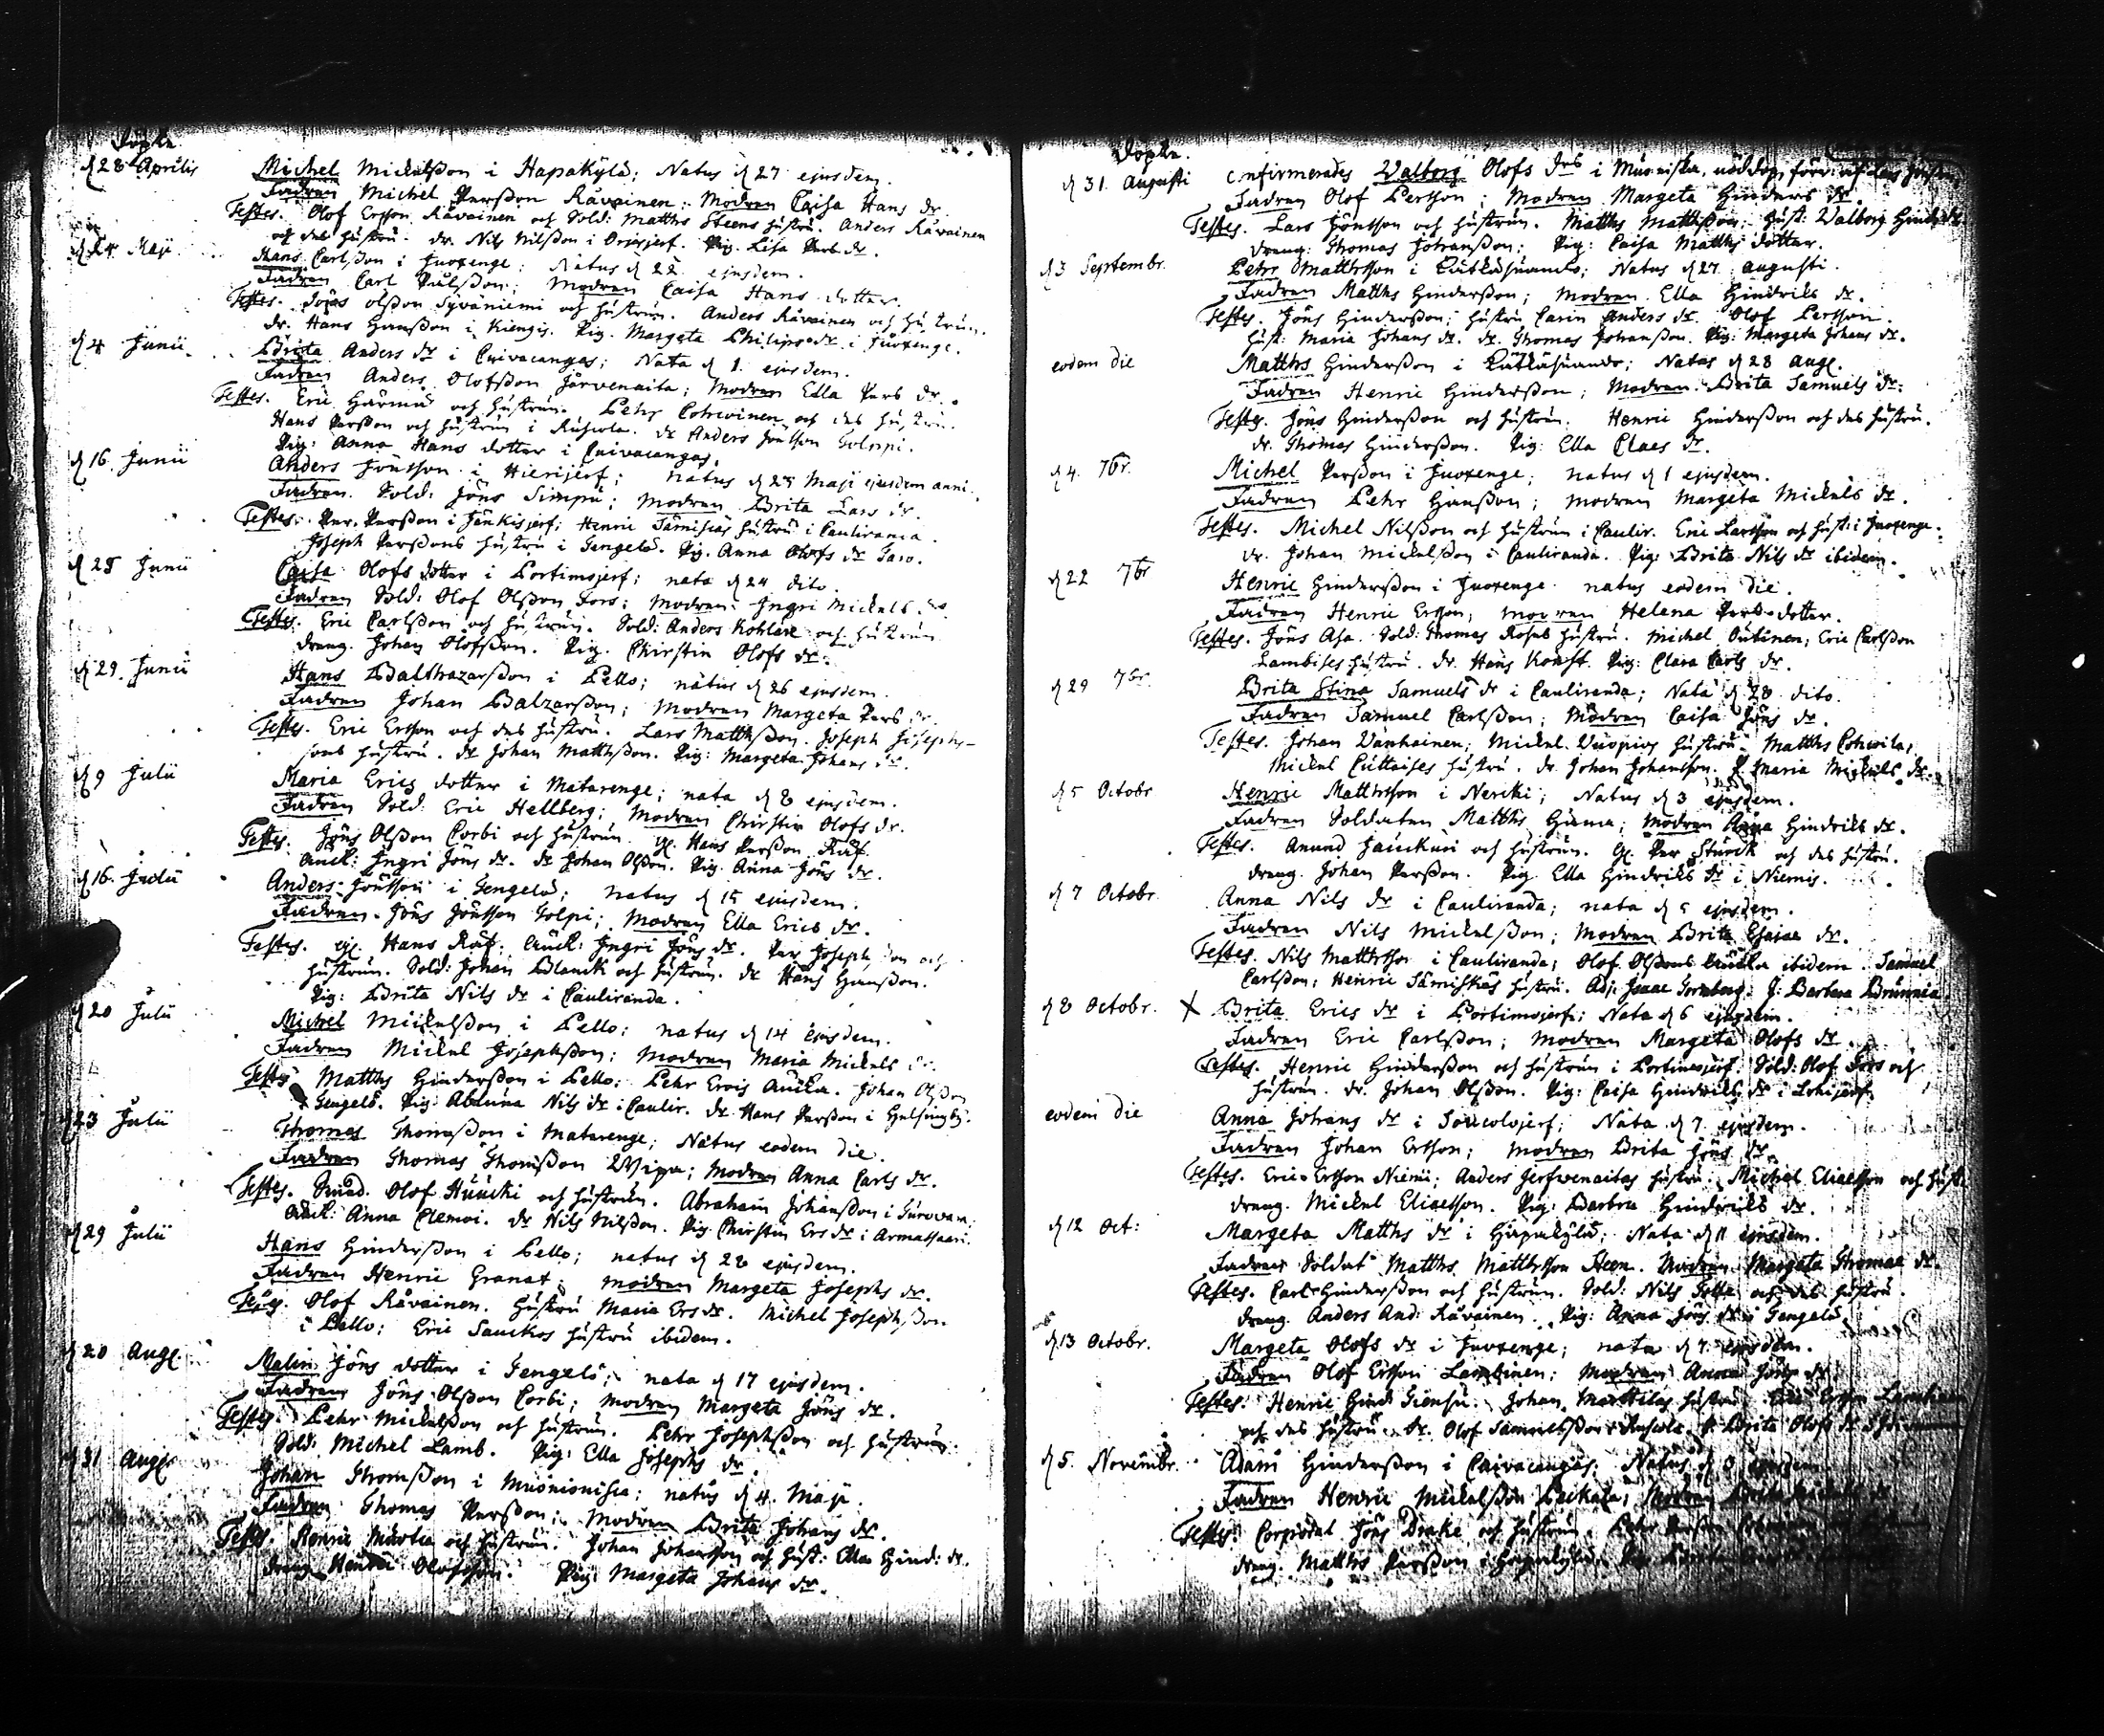 Döpte.
d 28 Aprilis Michel Mickelsson i Hapakylä; Natus d 27 ejusdem.
Fadren Michel Persson Råvainen; Modren Caisa Hans dr.
Testes. Olof Ersson Råvainen och Sold: Matths Steens hustru. Anders Råvainen
och des hustru. dr. Nils Nilsson i Pig. Lisa Pers dr.
d 24 Maji Hans Carlsson i Juoxenge; Natus d 22 ejusdem.
Fadren Carl Pålsson; Modren Caisa Hans dotter.
Testes. olsson Syväniemi och hustrun. Anders Råvainen och hustrun.
dr. Hans Hansson i Kiengis. Pig. Margeta Philips dr. i Juoxenge.
d 4 Junii Brita Anders dr i Cuivacangas; Nata d 1 ejusdem.
Fadren Anders Olofsson Järvenaita; Modren Ella Pers dr.
Testes. Eric Härmä och hustrun. Pehr och des hustru.
Hans Persson och hustrun i Ruskola. dr Anders Jönsson Golppi.
Pig: Anna Hans dotter i Cuivacangas.
d 16 Junii Anders Jönsson i Hierijerf; natus d 25 Maji ejusdem anni.
Fadren Sold: Jöns Simpu; Modren Brita Lars dr.
Testes. Per Persson i Jänkisjerf; Henric hustru i Cauliranta.
Joseph Perssons hustru i Gengelö. Pig. Anna Olofs dr
d 25 Junii Caisa Olofs dotter i Portimojerf; nata d 24 dito.
Fadren Sold: Olof Olsson Fors; Modren Ingri Mickels dr
Testes. Eric Carlsson och hustrun. Sold: Anders Kohlare och hustrun
dreng. Johan Olofsson. Pig. Chirstin Olofs dr.
d 29 Junii Hans Balthazarsson i Pello; natus d 26 ejusdem.
Fadren Johan Balzarsson; Modren Margeta Pers dr.
Testes. Eric Ersson och des hustru. Lars Matthsson. Joseph Josephs-
sons hustru. dr Johan Matthsson. Pig: Margeta Johans dr.
d 9 Julii Maria Erics dotter i Matarenge; nata d 8 ejusdem.
Fadren Sold. Eric Hellberg; Modren Chirstin Olofs dr.
Testes. Jöns Olsson Corbi och hustrun. gl. Hans Persson Räf.
änck: Ingri Jöns dr. dr Johan Olsson. Pig. Anna Jöns dr.
d 16 Julii Anders Jönsson i Gengelö; natus d 15 ejusdem.
Fadren Jöns Jönsson Golpi; Modren Ella Erics dr.
Testes. gl. Hans Räf; änck: Ingri Jöns dr. Per Josephsson och
hustrun. Sold: Johan Blanck och hustrun. dr Hans Hansson.
Pig: Brita Nils dr i Cauliranda.
d 20 Julii Michel Mickelsson i Pello; natus d 14 ejusdem.
Fadren Mickel Josephsson; Modren Maria Mickels dr.
Testes Matths Hindersson i Pello; Pehr äncka. Johan Olsson
Gengelö. Pig: Nils dr i Caulir. dr Hans Persson i Helsingby.
d 23 Julii Thomas Thomsson i Matarenge; Natus eodem die.
Fadren Thomas Thomsson Wipa; Modren Anna Carls dr.
Testes. Olof Huncki och hustrun. Abraham Johansson i
änck: Anna Clemoi. dr Nils Nilsson. Pig. Chirstin Ers dr i Armassaari.
d 29 Julii Hans Hindersson i Pello; natus d 28 ejusdem.
Fadren Henric Granat; Modren Margeta Josephs dr.
Testes. Olof Råvainen. hustru Maria Ers dr. Michel Josephsson
i Pello; Eric Sauckos hustru ibidem.
d 20 Aug. Malin Jöns dotter i Gengelö; nata d 17 ejusdem.
Fadren Jöns Olsson Corbi; Modren Margeta Jöns dr.
Testes. Pehr Mickelsson och hustrun. Pehr Josephsson och hustrun.
Sold: Michel Lamb. Pig: Ella Josephs dr.
d 31 Aug. Johan Thomsson i Muonionisca; natus d 4 Maji.
Fadren Thomas Persson; Modren Brita Johans dr.
Testes. Henric och hustrun. Johan Johansson och hust: Ella Hind: dr.
dreng Henric Olofsson. Pig: Margeta Johans dr.
Döpte.
d 31 Augusti Confirmerades Walborg Olofs drs i nöddop, förr. af Lars
Fadren Olof Persson; Modren Margeta Hinders dr.
Testes. Lars Jönsson och hustrun. Matths Matthsson; hust. Walborg
dreng: Thomas Johansson; Pig: Caisa Matths dotter.
d 3 Septembr. Pehr Matthsson i Natus d 27 augusti.
Fadren Matths Hindersson; Modren Ella Hindriks dr.
Testes. Jöns Hindersson; hustru Carin Anders dr. Olof Persson.
hust: Maria Johans dr. dr. Thomas Johansson. Pig: Margeta Johans dr.
eodem die Matths Hindersson i Natus d 28 aug.
Fadren Henric Hindersson; Modren Brita Samuels dr.
Testes. Jöns Hindersson och hustrun. Henric Hindersson och des hustru.
dr. Thomas Hindersson. Pig: Ella Claes dr.
d 4 7br. Michel Persson i Juoxenge; natus d 1 ejusdem.
Fadren Pehr Hansson; modren Margeta Mickels dr.
Testes. Michel Nilsson och hustrun i Caulir. Eric Larsson och hust: i Juoxenge.
dr. Johan Mickelsson i Cauliranda. Pig: Brita Nils dr ibidem.
d 22 7br Henric Hindersson i Juoxenge natus eodem die.
Fadren Henric Ersson; modren Helena Pers dotter.
Testes. Jöns Asa. Sold: Thomas Rosens hustru. Michel Outinen; Eric Carlsson
Lambises hustru. dr. Hans Pig: Clara Carls dr.
d 29 7br. Brita Stina Samuels dr i Cauliranda; Nata d 28 dito.
Fadren Samuel Carlsson; Modren Caisa Jöns dr.
Testes. Johan Wänhainen; Mickel Vuopios hustru. Matths
Mickel hustru. dr. Johan Johansson. P. Maria Mickels dr.
d 5 Octobr Henric Matthsson i Neriki; Natus d 3 ejusdem.
Fadren Soldaten Matths Modren Anna Hindriks dr.
Testes. Anund och hustrun. gl. Per Sturck och des hustru.
dreng. Johan Persson. Pig. Ella Hindriks dr i Niemis.
d 7 Octobr. Anna Nils dr i Cauliranda; nata d 5 ejusdem.
Fadren Nils Mickelsson; Modren Brita Esaiae dr.
Testes. Nils Matthsson i Cauliranda; Olof Olssons änka ibidem. Samuel
Carlsson; Henric hustru. Adj: Isaac Grenberg. J: Barbara Brunnia.
d 8 Octobr. X Brita Erics dr i Portimojerf; Nata d 6 ejusdem.
Fadren Eric Carlsson; Modren Margeta Olofs dr.
Testes. Henric Hindersson och hustrun i Portimojerf. Sold: Olof Fors och
hustrun. dr. Johan Olsson. Pig: Caisa Hindriks dr i Lohijerf.
eodem die Anna Johans dr i Nata d 7 ejusdem.
Fadren Johan Ersson; Modren Brita Jöns dr.
Testes. Eric Ersson Niemi; Anders Jerfwenaitas hustru. Michel Eliaesson och hust.
dreng. Mickel Eliaesson. Pig: Barbra Hindriks dr.
d 12 Oct: Margeta Matths dr i Hapakylä; Nata d 11 ejusdem.
Fadren Soldat Matths Matthsson Steen. Modren Margeta Thomae dr.
Testes. Carl Hindersson och hustrun. Sold: Nils och des hustru.
dreng. Anders And: Råvainen. Pig: Anna Jöns dr i Gengelö.
d 13 Octobr. Margeta Olofs dr i Juoxenge; nata d 7 ejusdem.
Fadren Olof Ersson Lambinen; Modren Anna Jöns dr
Testes. Henric Johan Marttilas hustru. Eric Ersson Lambinen
och des hustru. dr. Olof Samuelsson i Ruskola. P. Brita Olofs dr
d 5. Novembr. Adam Hindersson i Caivacangas; Natus d 3 ejusdem
Fadren Henric Mickelsson Modren
Testes. Corporal Jöns Drake och hustrun. Pehr Persson
dreng. Matths Persson i Hapakylä.